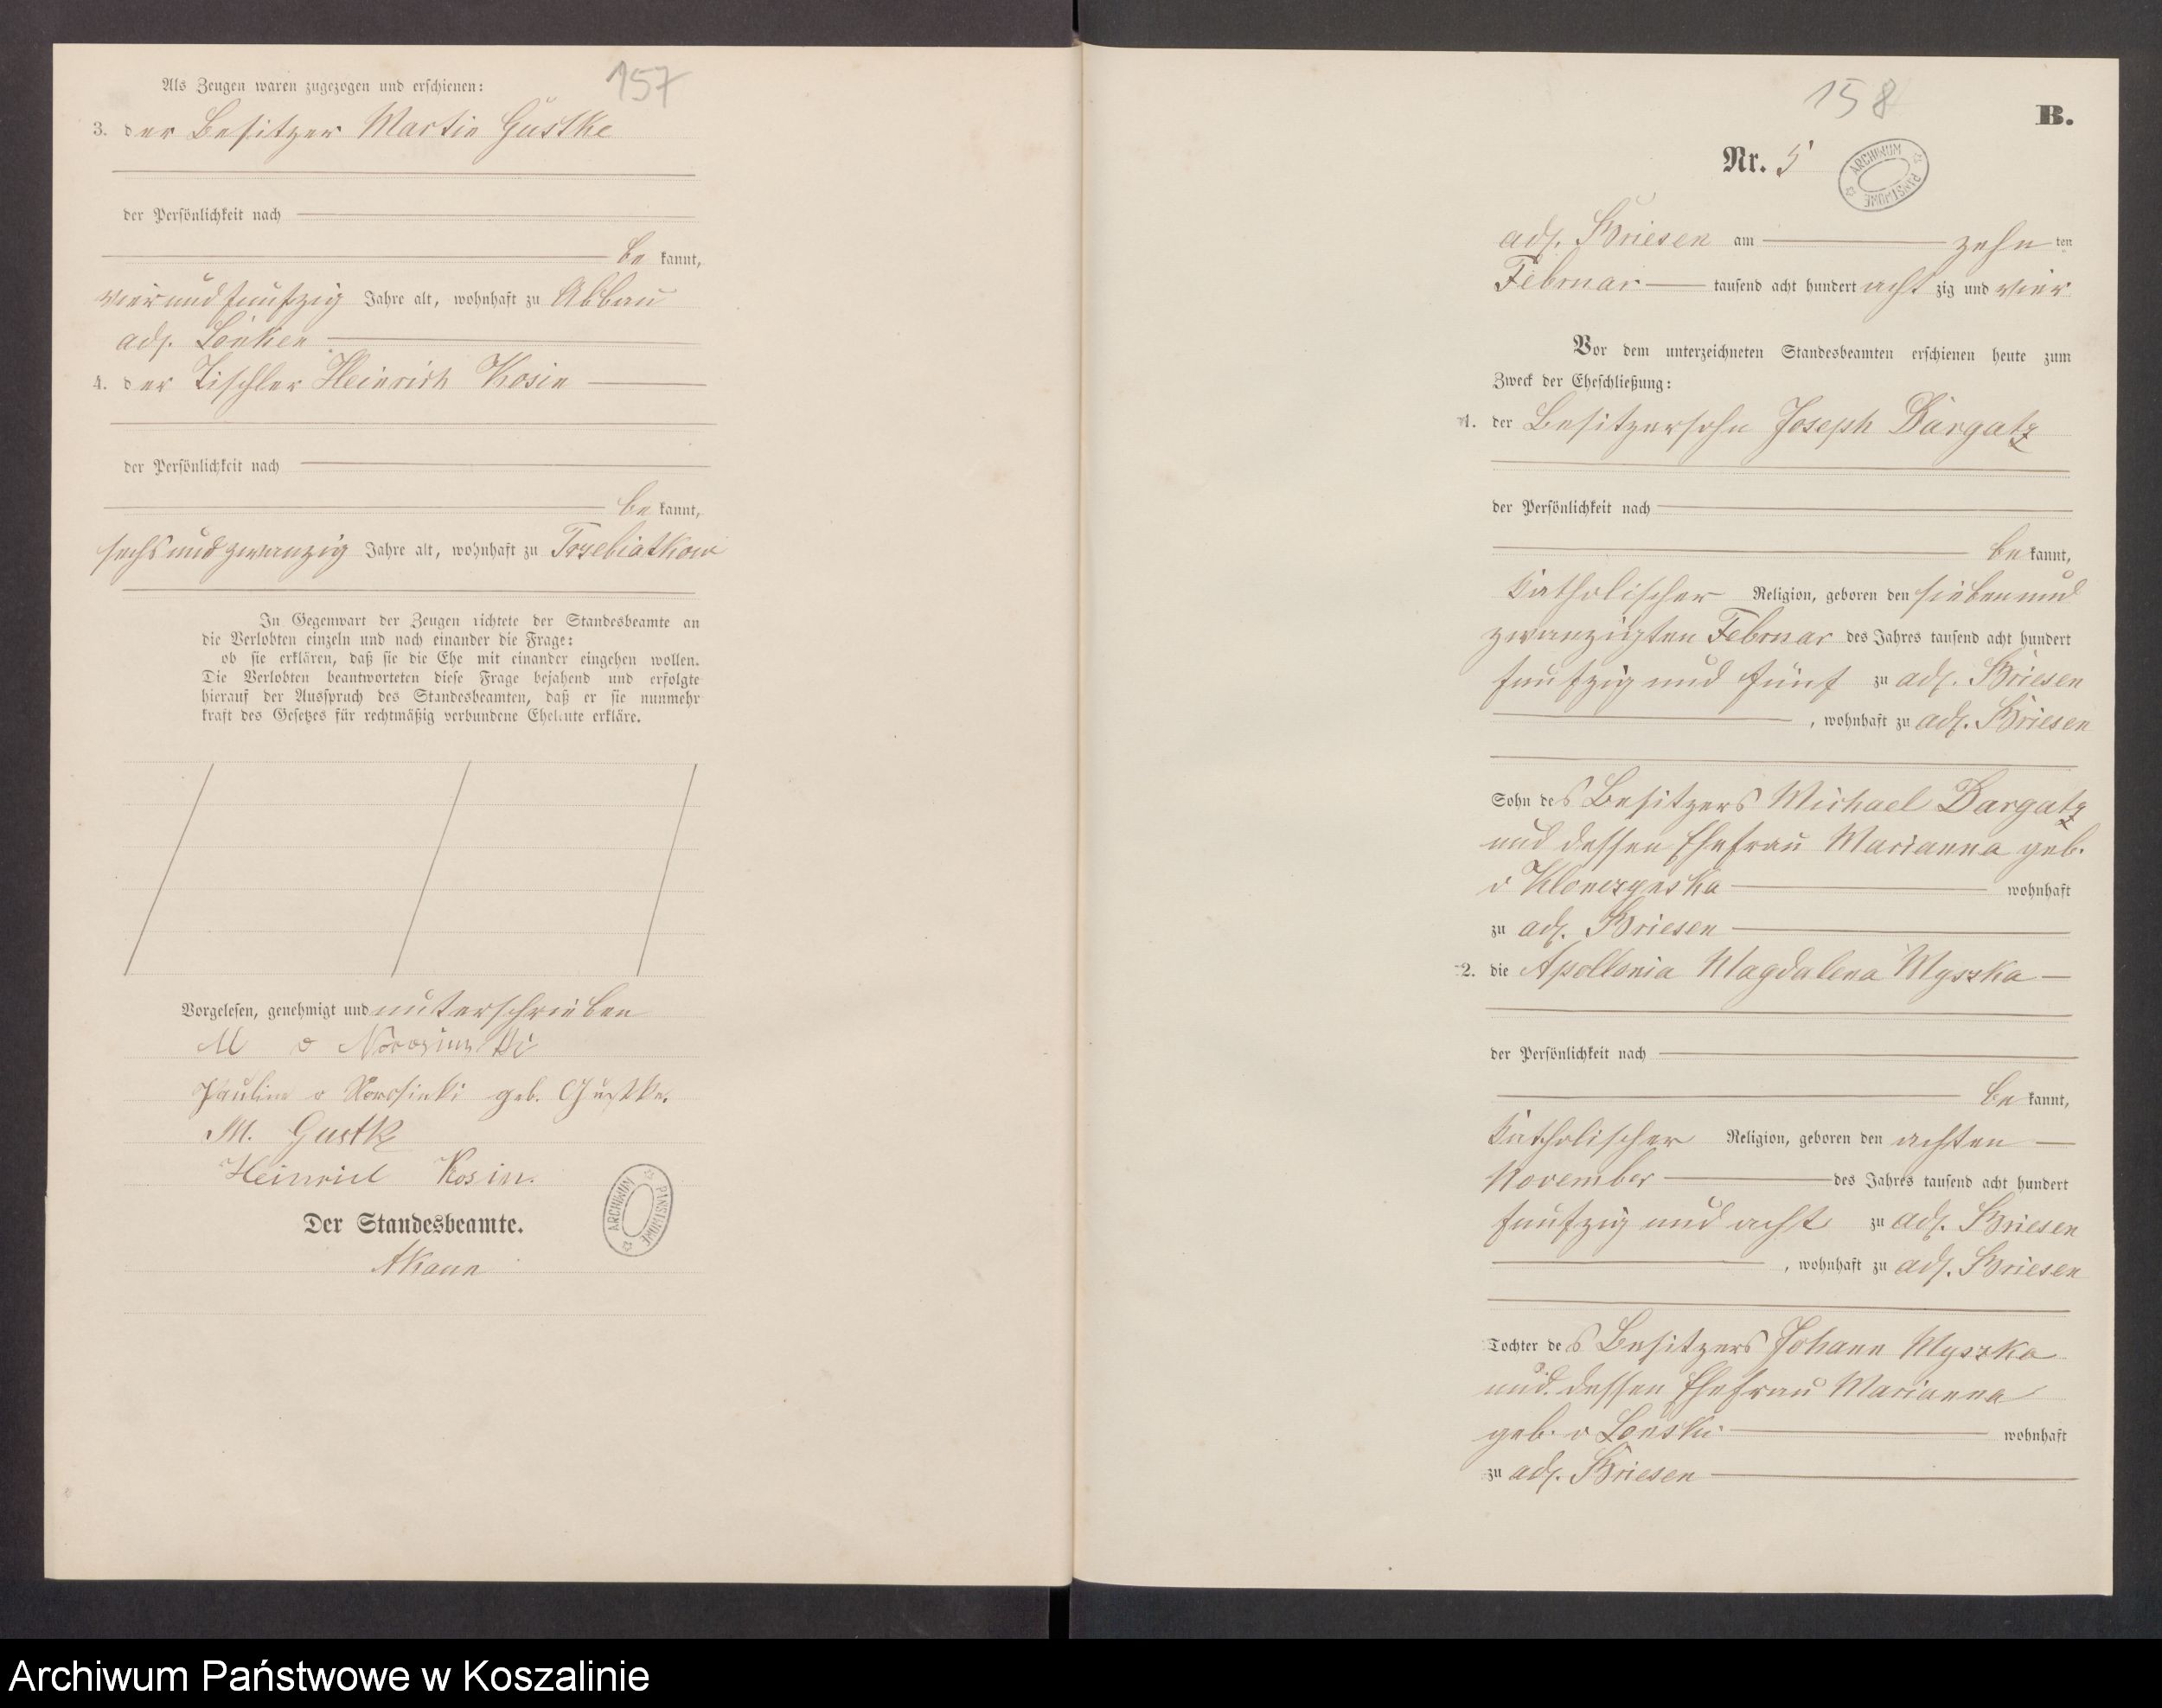 157
Als Zeugen waren zugezogen und erschienen:
3. der Besitzer Martin Gustke
der Persönlichkeit nach
be kannt,
vier und funfzig Jahre alt, wohnhaft zu Abbau
adl.
4. der Tischler Heinrich Kosin
der Persönlichkeit nach
be kannt,
sechs und zwanzig Jahre alt, wohnhaft zu Trzebiatkow
In Gegenwart der Zeugen richtete der Standesbeamte an
die Verlobten einzeln und nach einander die Frage:
ob sie erklären, daß sie die Ehe mit einander eingehen wollen.
Die Verlobten beantworteten diese Frage bejahend und erfolgte
hierauf der Ausspruch des Standesbeamten, daß er sie nunmehr
kraft des Gesetzes für rechtmäßig verbundene Eheleute erkläre.
Vorgelesen, genehmigt und unterschrieben
M v
Pauline v geb. Gustke.
M. Gustk
Heinrich Kosin.
ARCHIWUM PAŃSTWOWE
Der Standesbeamte.
158
B.
Nr. 5
ARCHIWUM PAŃSTWOWE
adl. Briesen am zehn ten
Februar tausend acht hundert acht zig und vier
Vor dem unterzeichneten Standesbeamten erschienen heute zum
Zweck der Eheschließung:
1. der Besitzersohn Joseph Dargatz
der Persönlichkeit nach
be kannt,
katholischer Religion, geboren den sieben und
zwanzigsten Februar des Jahres tausend acht hundert
funfzig und fünf zu adl. Briesen
, wohnhaft zu adl. Briesen
Sohn des Besitzers Michael Dargatz
und dessen Ehefrau Marianna geb.
v wohnhaft
zu adl. Briesen
2. die Apollonia Magdalena Myszka
der Persönlichkeit nach
be kannt,
katholischer Religion, geboren den achten
November des Jahres tausend acht hundert
funfzig und acht zu adl. Briesen
, wohnhaft zu adl. Briesen
Tochter des Besitzers Johann Myszka
und dessen Ehefrau Marianna
geb. v Lenski wohnhaft
zu adl. Briesen
Archiwum Państwowe w Koszalinie